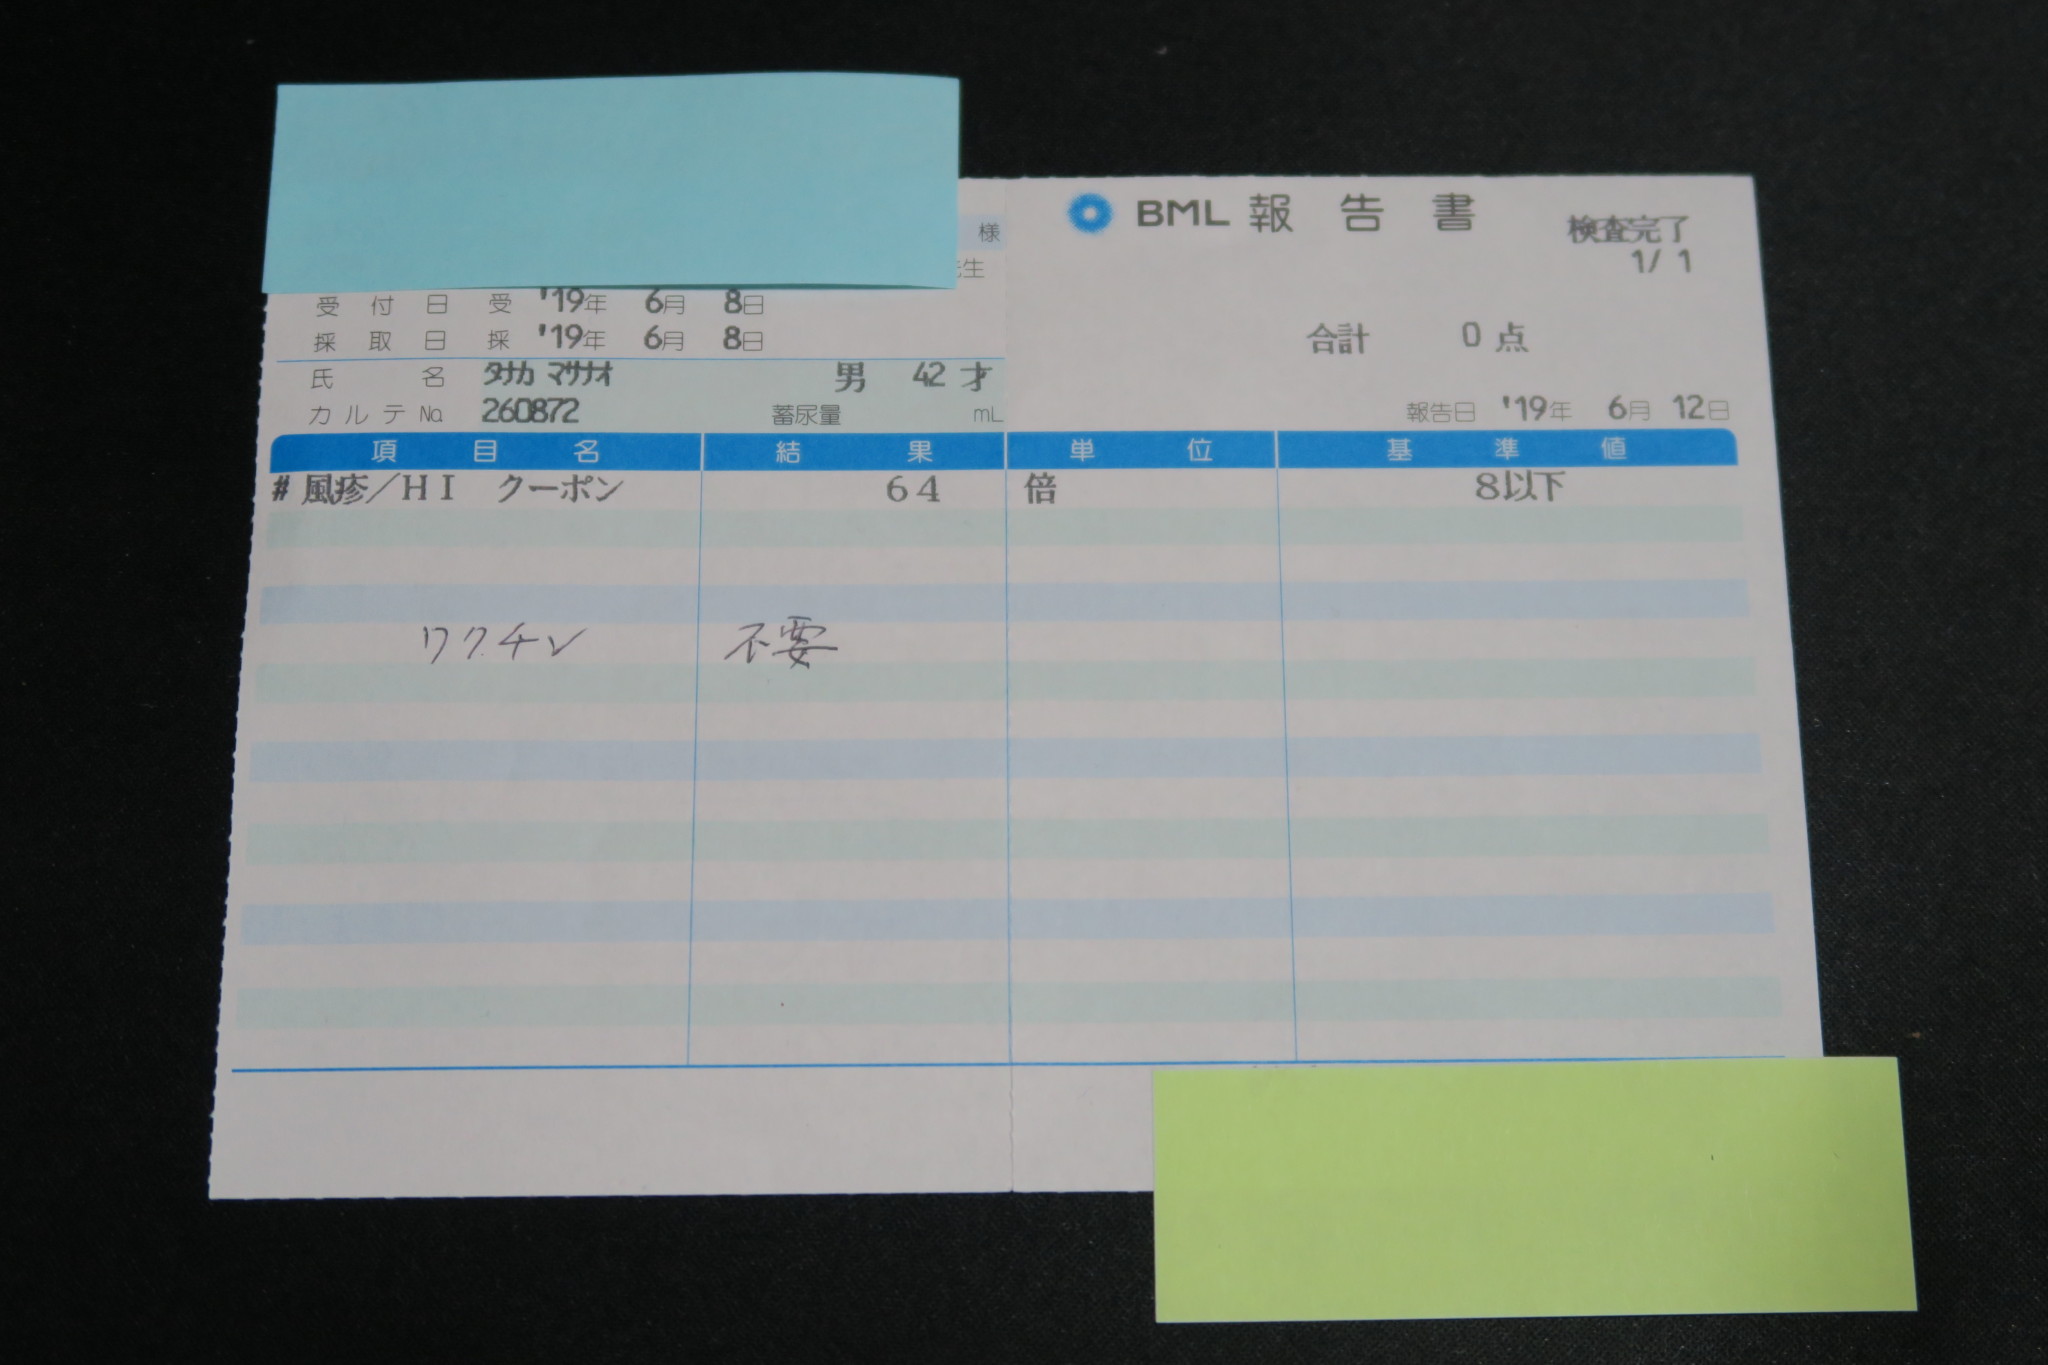 BML 報告書
検査完了
1/ 1
様
先生
受付日 受 '19年 6月 8日
採取日 採 '19年 6月 8日
合計 0 点
氏名 タナカ マサナオ 男 42 才
カルテNo. 260872 蓄尿量 mL
報告日 '19年 6月 12日
項目名 結果 単位 基準値
# 風疹/HI クーポン 64 倍 8以下
ワクチン 不要